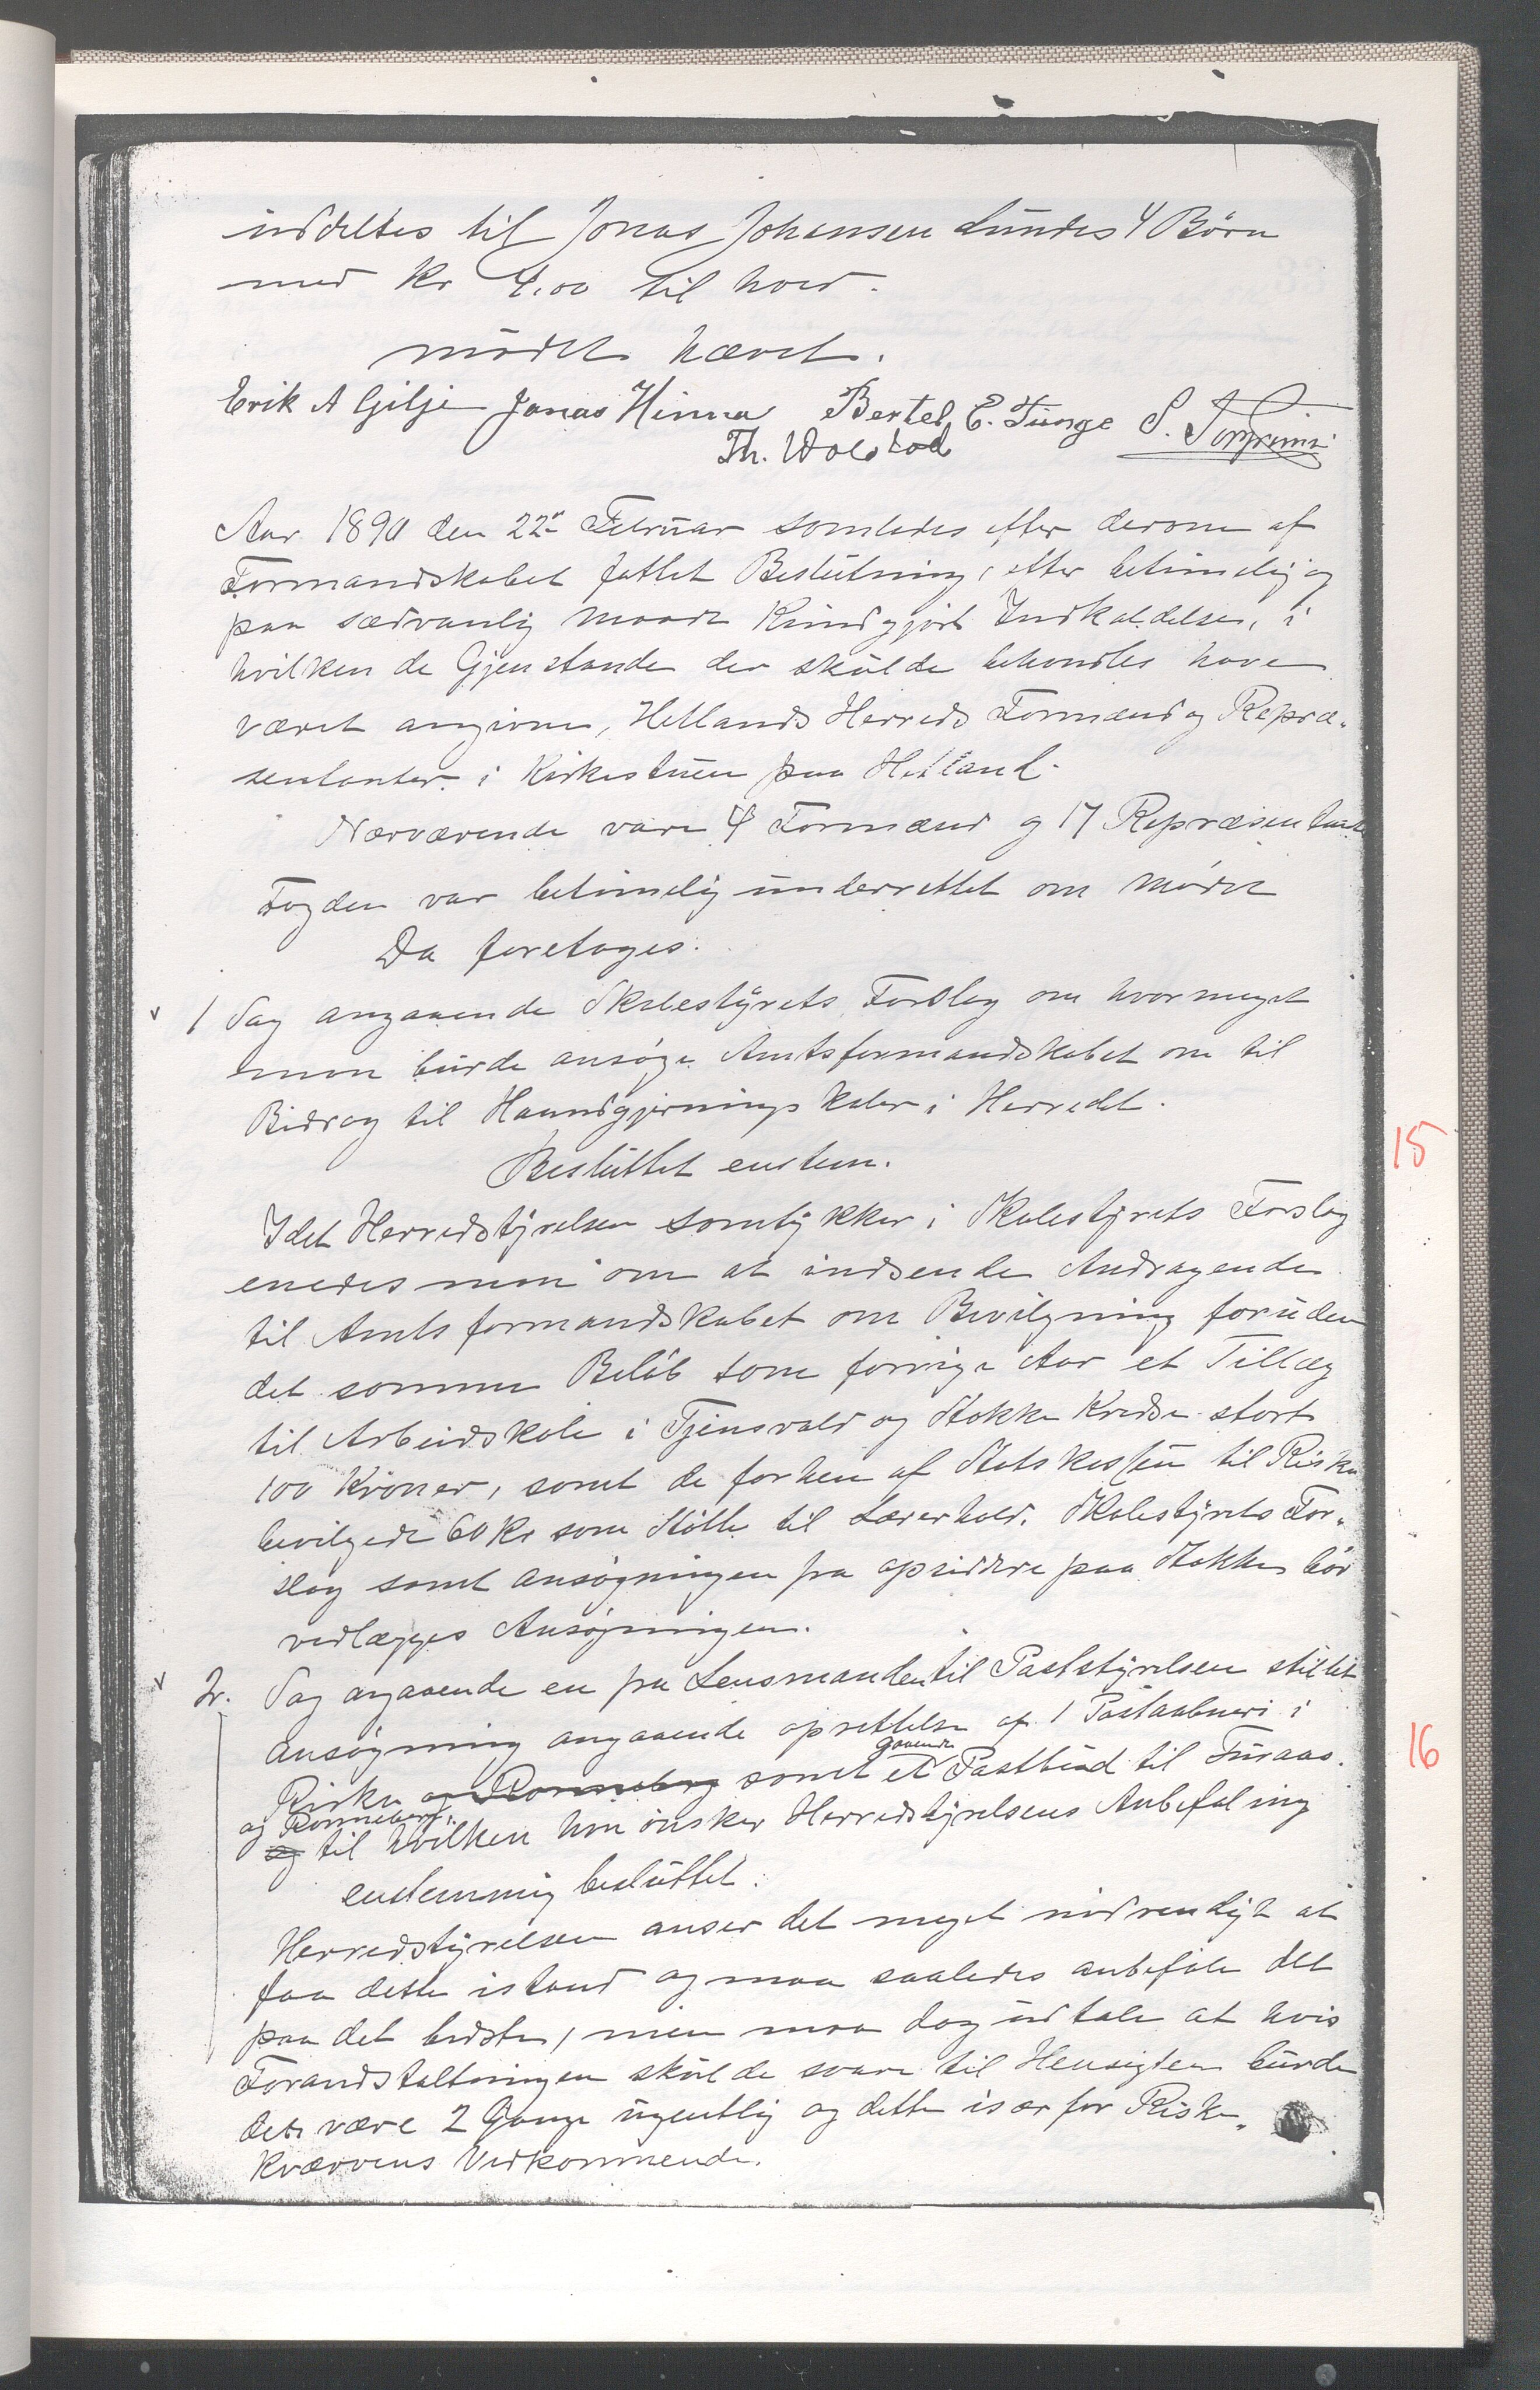 uddeltes til Jonas Johansen Lundes 4 Børn
med Kr 4.00 til hver.
mødet hævet.
Erik A Gilje Jonas Hinna Bertel E. Tunge S. Torgrims
Th. Wolstad
Aar 1890 den 22de Februar samledes efter derom af
Formandskabet fattet Beslutning, efter betimelig og
paa sædvanlig Maade Kundgjort Indkaldelse, i
hvilken de Gjenstande der skulde behandles have
været angivne, Hetlands Herreds Formænd og Repræ-
sentanter i Kirkestuen paa Hetland.
Nærværende vare 4 Formænd og 17 Repræsentanter
Fogden var betimelig underrettet om Mødet
Da foretoges.
1 Sag angaaende Skolestyrets Forslag om hvormeget
man burde ansøge Amtsformandskabet om til
Bidrag til Haandgjerningskoler i Herredet.
Besluttet enstem.
Idet Herredstyrelsen samtykker i Skolestyrets Forslag
enedes man om at indsende Andragende
til Amtsformandskabet om Bevilgning foruden
det samme Beløb som forrige Aar et Tillæg
til Arbeidskole i Tjensvold og Stokke Kredse stort
100 Kroner, samt de forhen af Statskassen til Riska
bevilgede 60 Kr som Støtte til Lærerhold. Skolestyrets For-
slag samt Ansøgningen fra opsiddere paa Stokke bør
vedlægges Ansøgningen.
15
2. Sag angaaende en fra Lensmanden til Poststyrelsen stillet
ansøgning angaaende oprettelse af 1 Postaabneri i
gaaende
Riska og Ronneberg samt et Postbud til Furaas.
og Ronneberg.
og til hvilken hun ønsker Herredstyrelsens Anbefaling
16
enstemmig besluttet.
Herredstyrelsen anser det meget nødvendigt at
faa dette istand og maa saaledes anbefale det
paa det bedste, men maa dog udtale at hvis
Forandstaltningen skulde svare til Hensigten burde
det være 2 Gange ugentlig og dette især for Riske-
Kværvens Vedkommende.